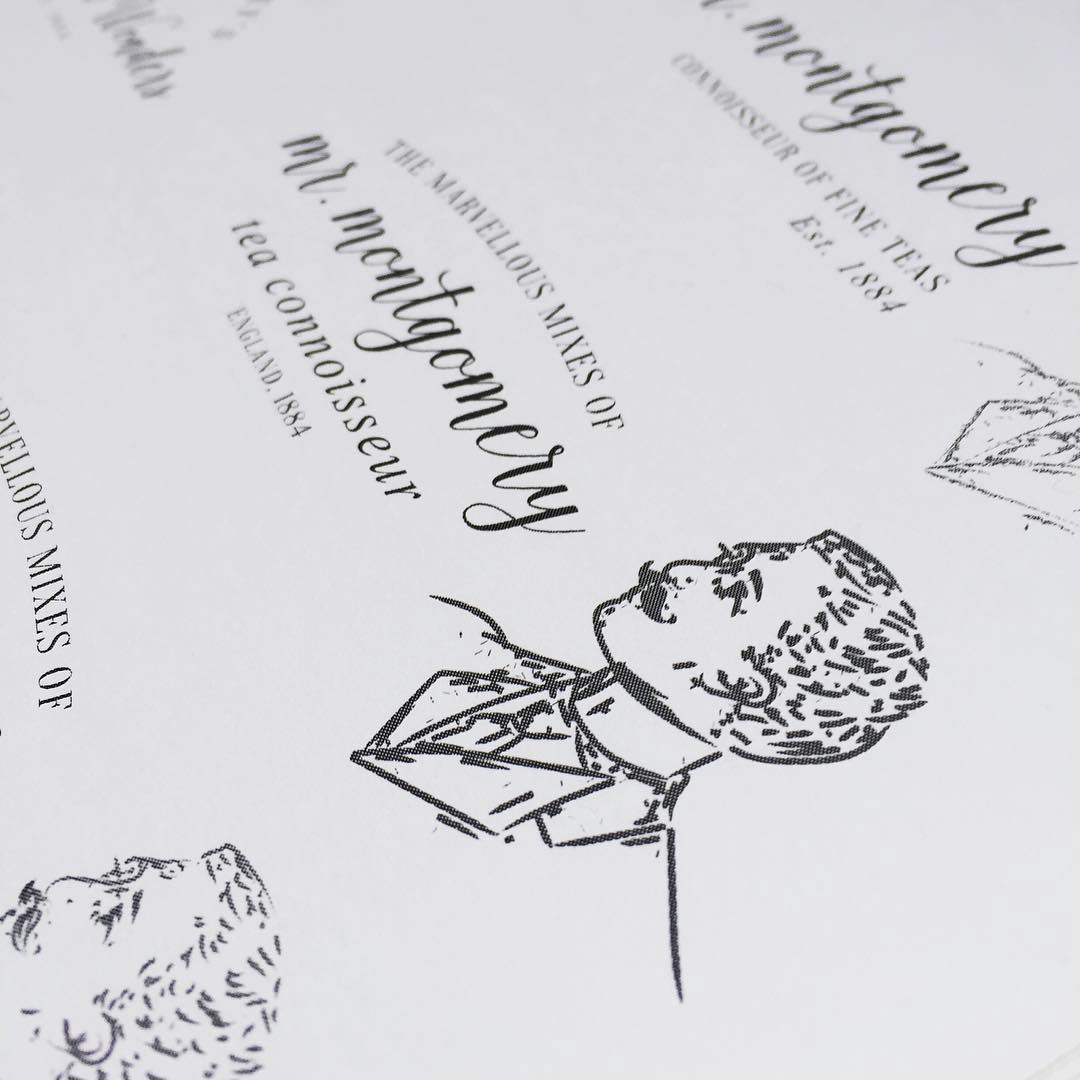 Wonders
montgomery
CONNOISSEUR OF FINE TEAS
Est. 1884
THE MARVELLOUS MIXES OF
mr. montgomery
tea connoisseur
ENGLAND, 1884
MIXES OF